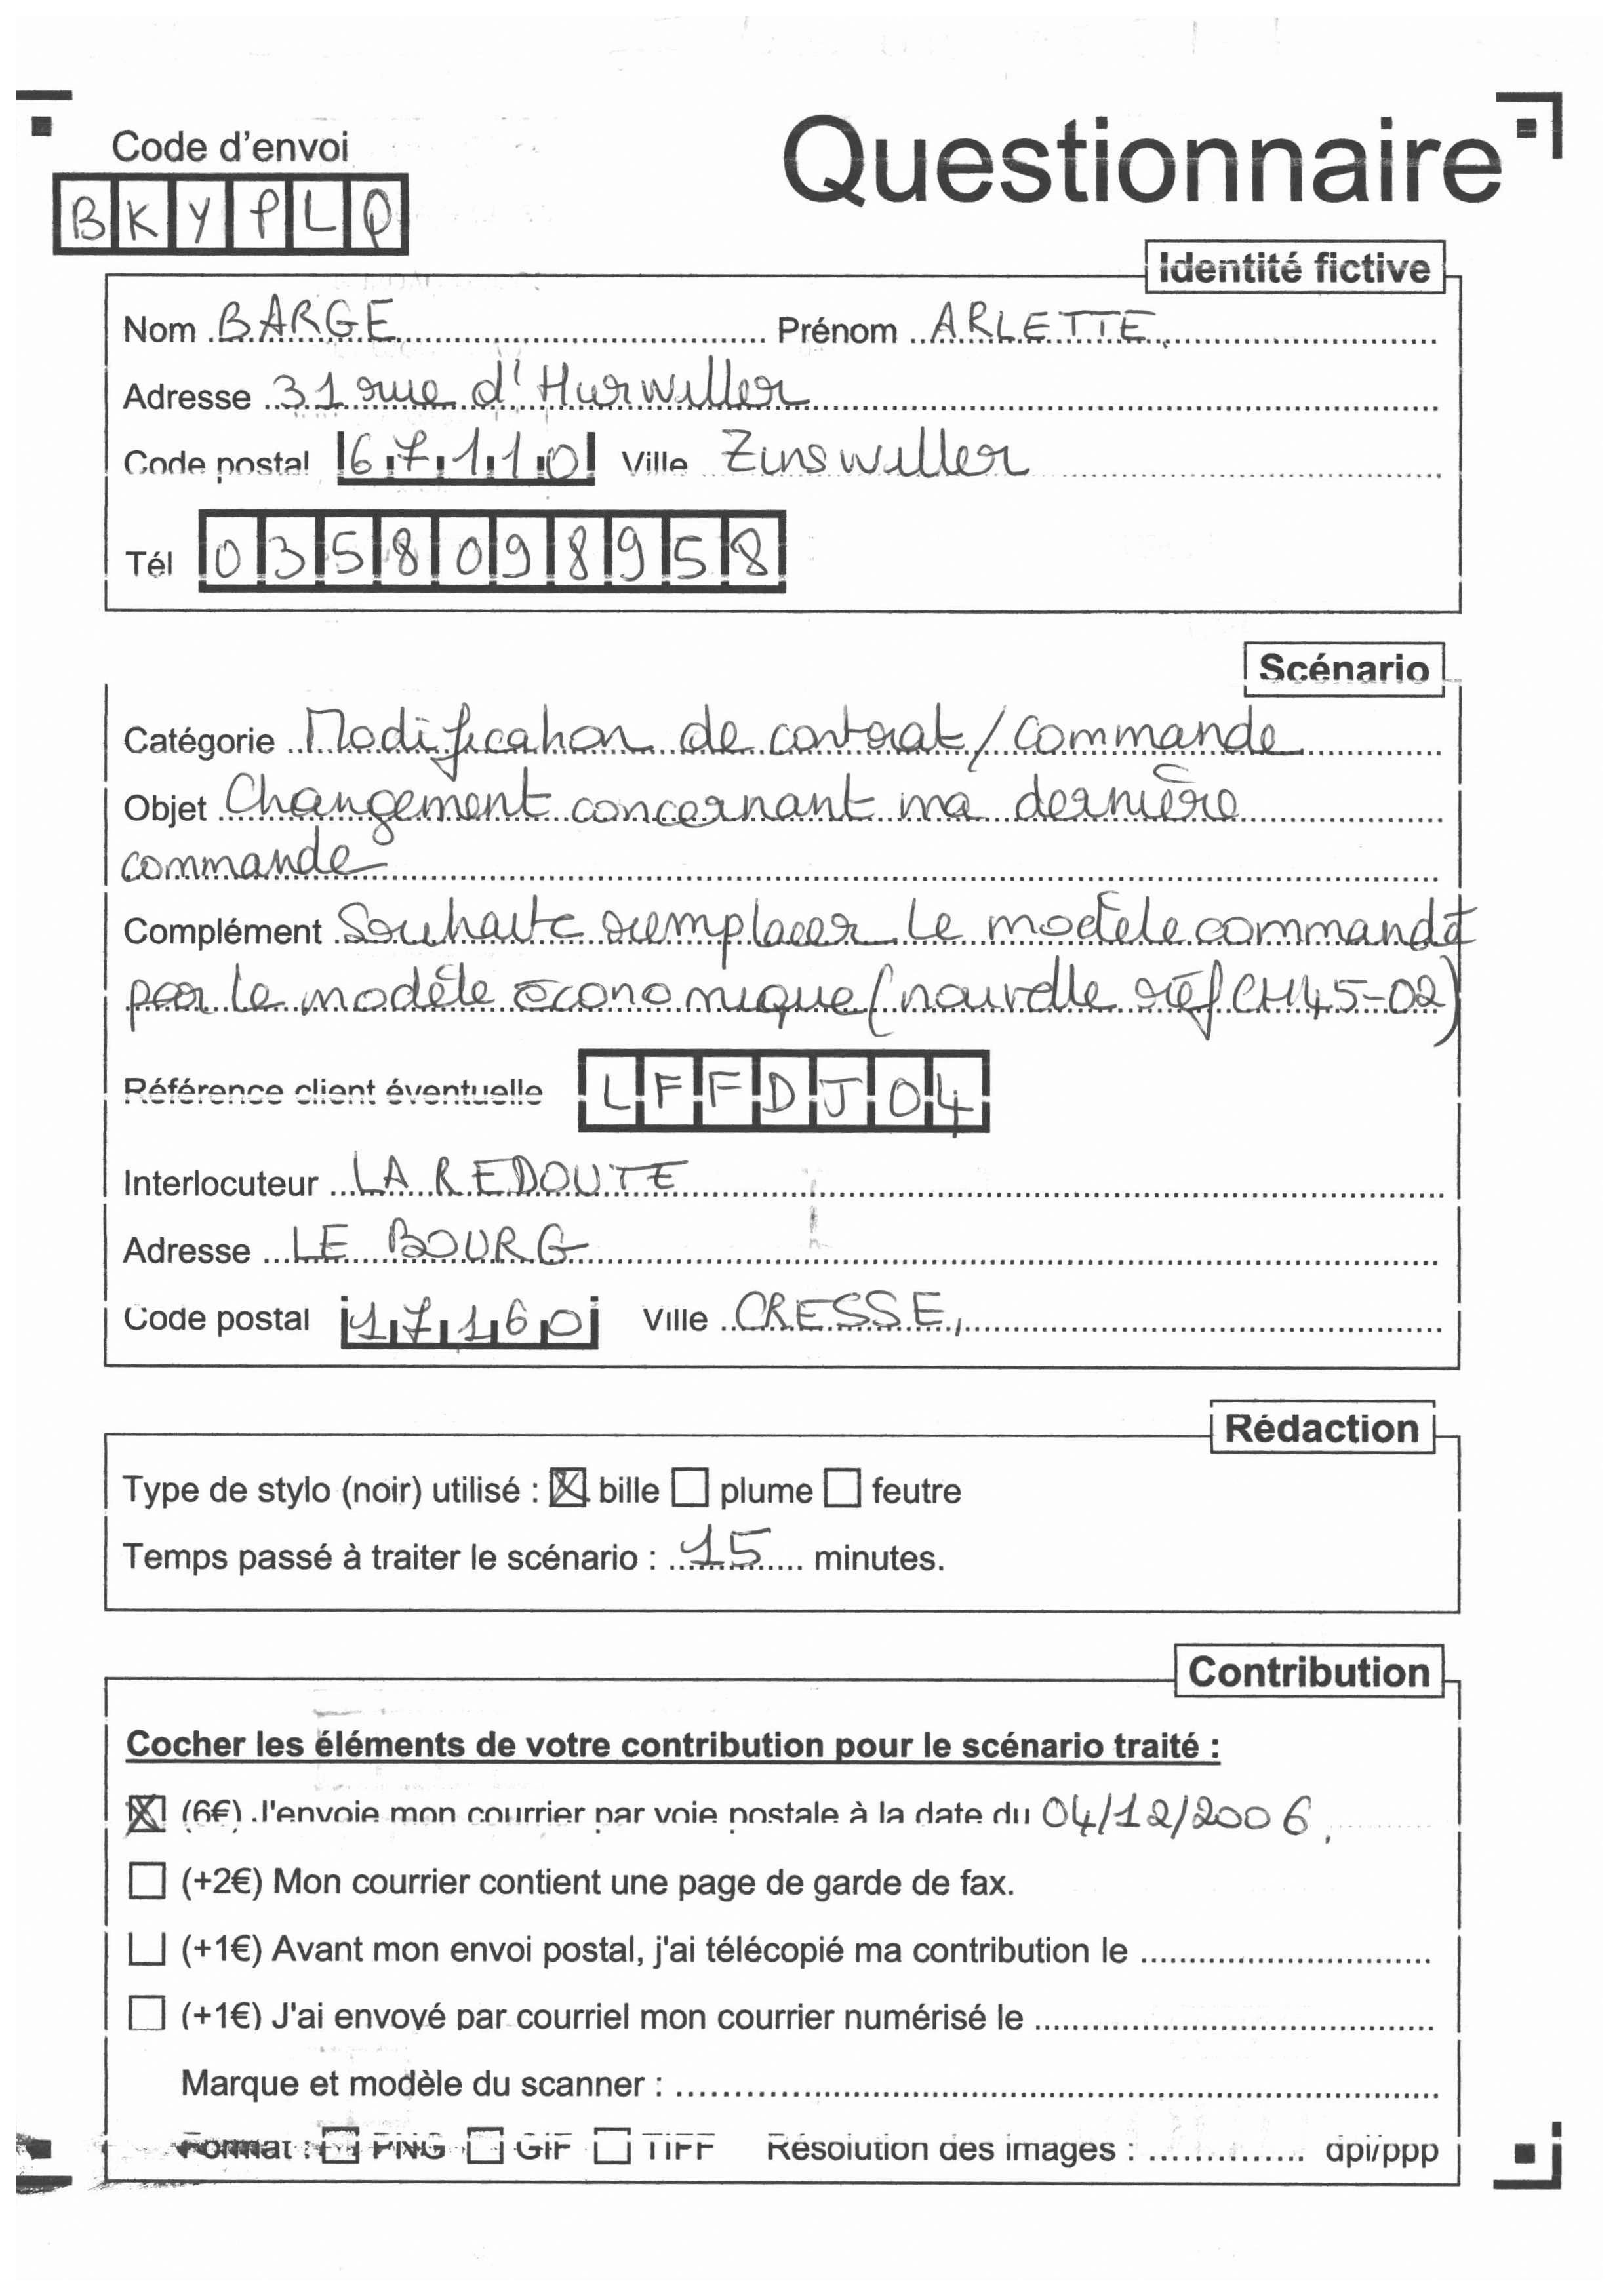 Code d'envoi
Questionnaire
BKYPLQ
Identité fictive
Nom BARGE Prénom ARLETTE
Adresse 31 rue d'Hurwiller
Code postal 67110 Ville Zinswiller
Tél 0358098958
Scénario
Catégorie Modification de contrat/commande
Objet Changement concernant ma dernière
commande
Complément Souhaite remplacer le modèle commandé
par le modèle économique (nouvelle réf CH45-02)
Référence client éventuelle LFFDJ04
Interlocuteur LA REDOUTE
Adresse LE BOURG
Code postal 17160 Ville CRESSE,
Rédaction
Type de stylo (noir) utilisé : ☒ bille ☐ plume ☐ feutre
Temps passé à traiter le scénario : 15 minutes.
Contribution
Cocher les éléments de votre contribution pour le scénario traité :
☒ (6€) J'envoie mon courrier par voie postale à la date du 04/12/2006.
☐ (+2€) Mon courrier contient une page de garde de fax.
☐ (+1€) Avant mon envoi postal, j'ai télécopié ma contribution le
☐ (+1€) J'ai envoyé par courriel mon courrier numérisé le
Marque et modèle du scanner :
Format : ☐ PNG ☐ GIF ☐ TIFF Résolution des images : dpi/ppp